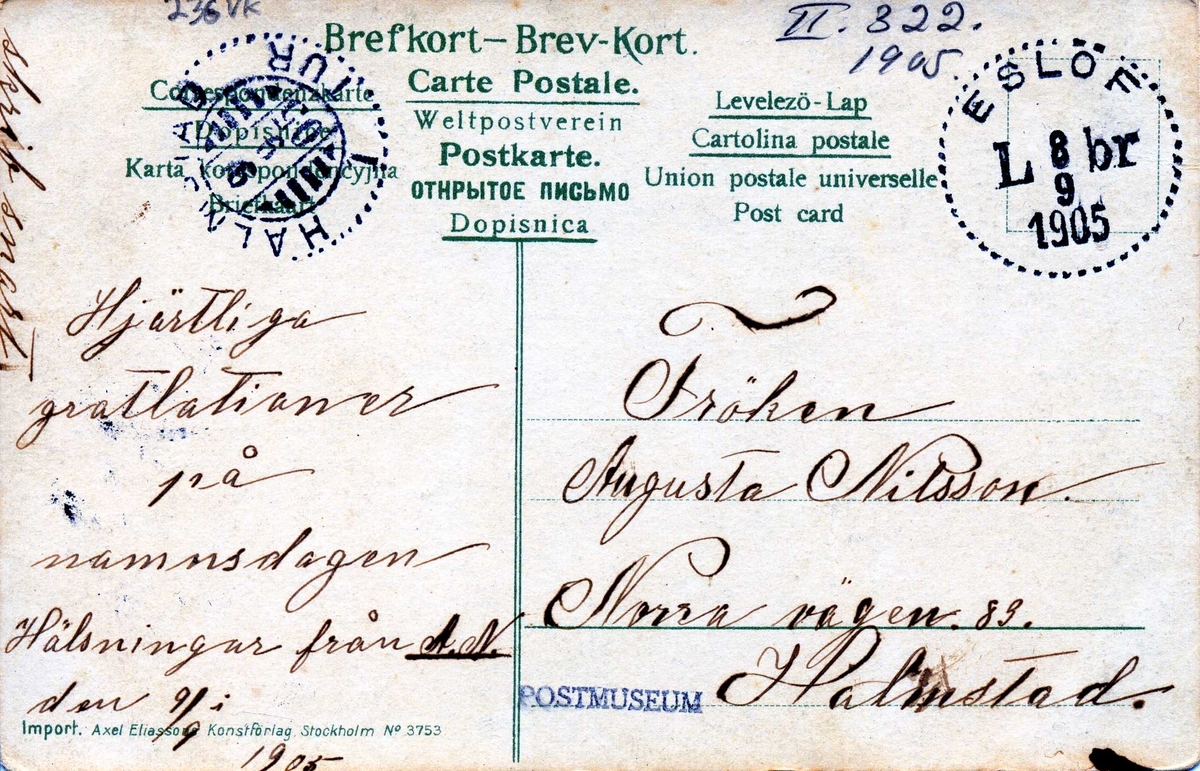 236VK
II. 322.
1905.
Brefkort—Brev-Kort.
Carte Postale.
Weltpostverein
Postkarte.
ОТКРЫТОЕ ПИСЬМО
Dopisnica
Correspondenzkarte
Dopisnice
Karta korrespondencyjna
Briefkaart
Levelező-Lap
Cartolina postale
Union postale universelle
Post card
ESLÖF
L 8 br
9
1905
skrif snart
Hjärtliga
gratlationer
på
namnsdagen
Hälsningar från A. N.
den 9/9 i
1905
Fröken
Augusta Nilsson.
Norra vägen. 89.
Halmstad.
POSTMUSEUM
Import. Axel Eliassons Konstförlag Stockholm Nº 3753